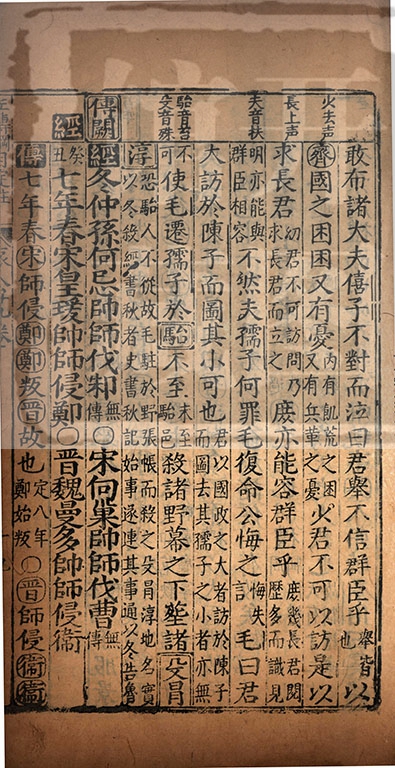 少去声
敢布諸大夫僖子不對而泣曰君舉不信群臣乎舉皆也以
齊國之困困又有憂内有飢荒之困又有兵革之憂少君不可以訪是以
長上声
求長君幼君不可訪問乃求長君而立之庶亦能容群臣乎庶幾長君閱歷多而識見
夫音扶
明亦能與群臣相容不然夫孺子何罪毛復命公悔之悔失言毛曰君
大訪於陳子而圖其小可也君以國政之大者訪於陳子而圖去其孺子之小者亦無
駘音台
殳音殊
不可使毛遷孺子於駘不至未至駘邑殺諸野幕之下塟諸殳冒
淳恐駘人不從故毛駐於野張帳而殺之殳冒淳地名實以冬殺經書秋者史書秋記始事遂連其事通以冬告魯
傳闕
經冬仲孫何忌帥師伐邾無傳○宋向巢帥師伐曹無傳
經
癸丑七年春宋皇瑗帥師侵鄭○晉魏曼多帥師侵衛
傳七年春宋師侵鄭鄭叛晉故也定八年鄭始叛○晉師侵衛衛